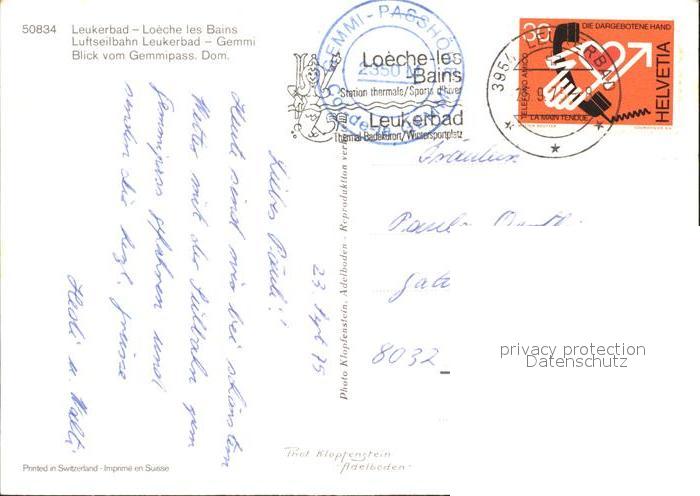 50834 Leukerbad – Loèche les Bains
Luftseilbahn Leukerbad – Gemmi
Blick vom Gemmipass. Dom.
GEMMI-PASSHÖ
2350 M
Loèche-les
Bains
Station thermale/Sports d'hiver
Leukerbad
Thermal-Badekurort/Wintersportplatz
3954 LEUKERBAD
30
DIE DARGEBOTENE HAND
TELEFONO AMICO
LA MAIN TENDUE
HELVETIA
23 Sept 75
Liebes Päuli!
Heute sind wir bei schönstem
Wetter mit der Luftseilbahn zum
Gemmipass gefahren und
senden dir herzl. Grüsse
Hedi u. Walti
Photo Klopfenstein, Adelboden - Reproduktion verb
Fräulein
8032
privacy protection
Datenschutz
Phot Klopfenstein
-Adelboden-
Printed in Switzerland - Imprimé en Suisse